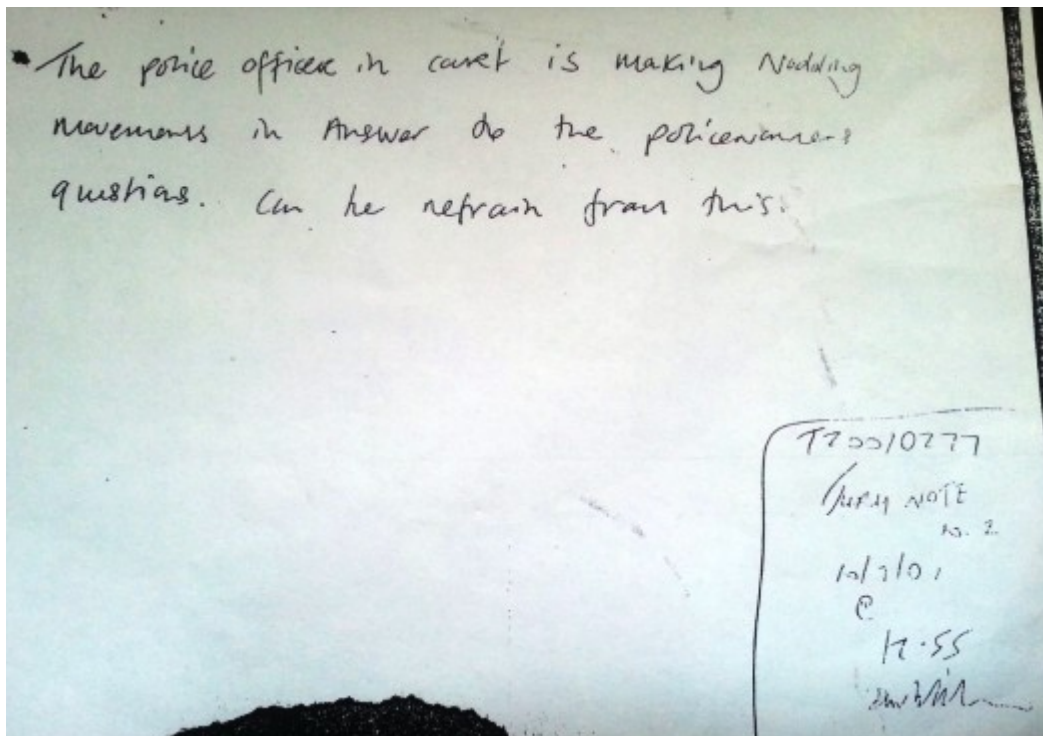 The police officer in court is making Nodding
movements in Answer to the policewomans
questions. Can he refrain from this.
T20010277
JURY NOTE
No. 2
10/9/01
@
12.55